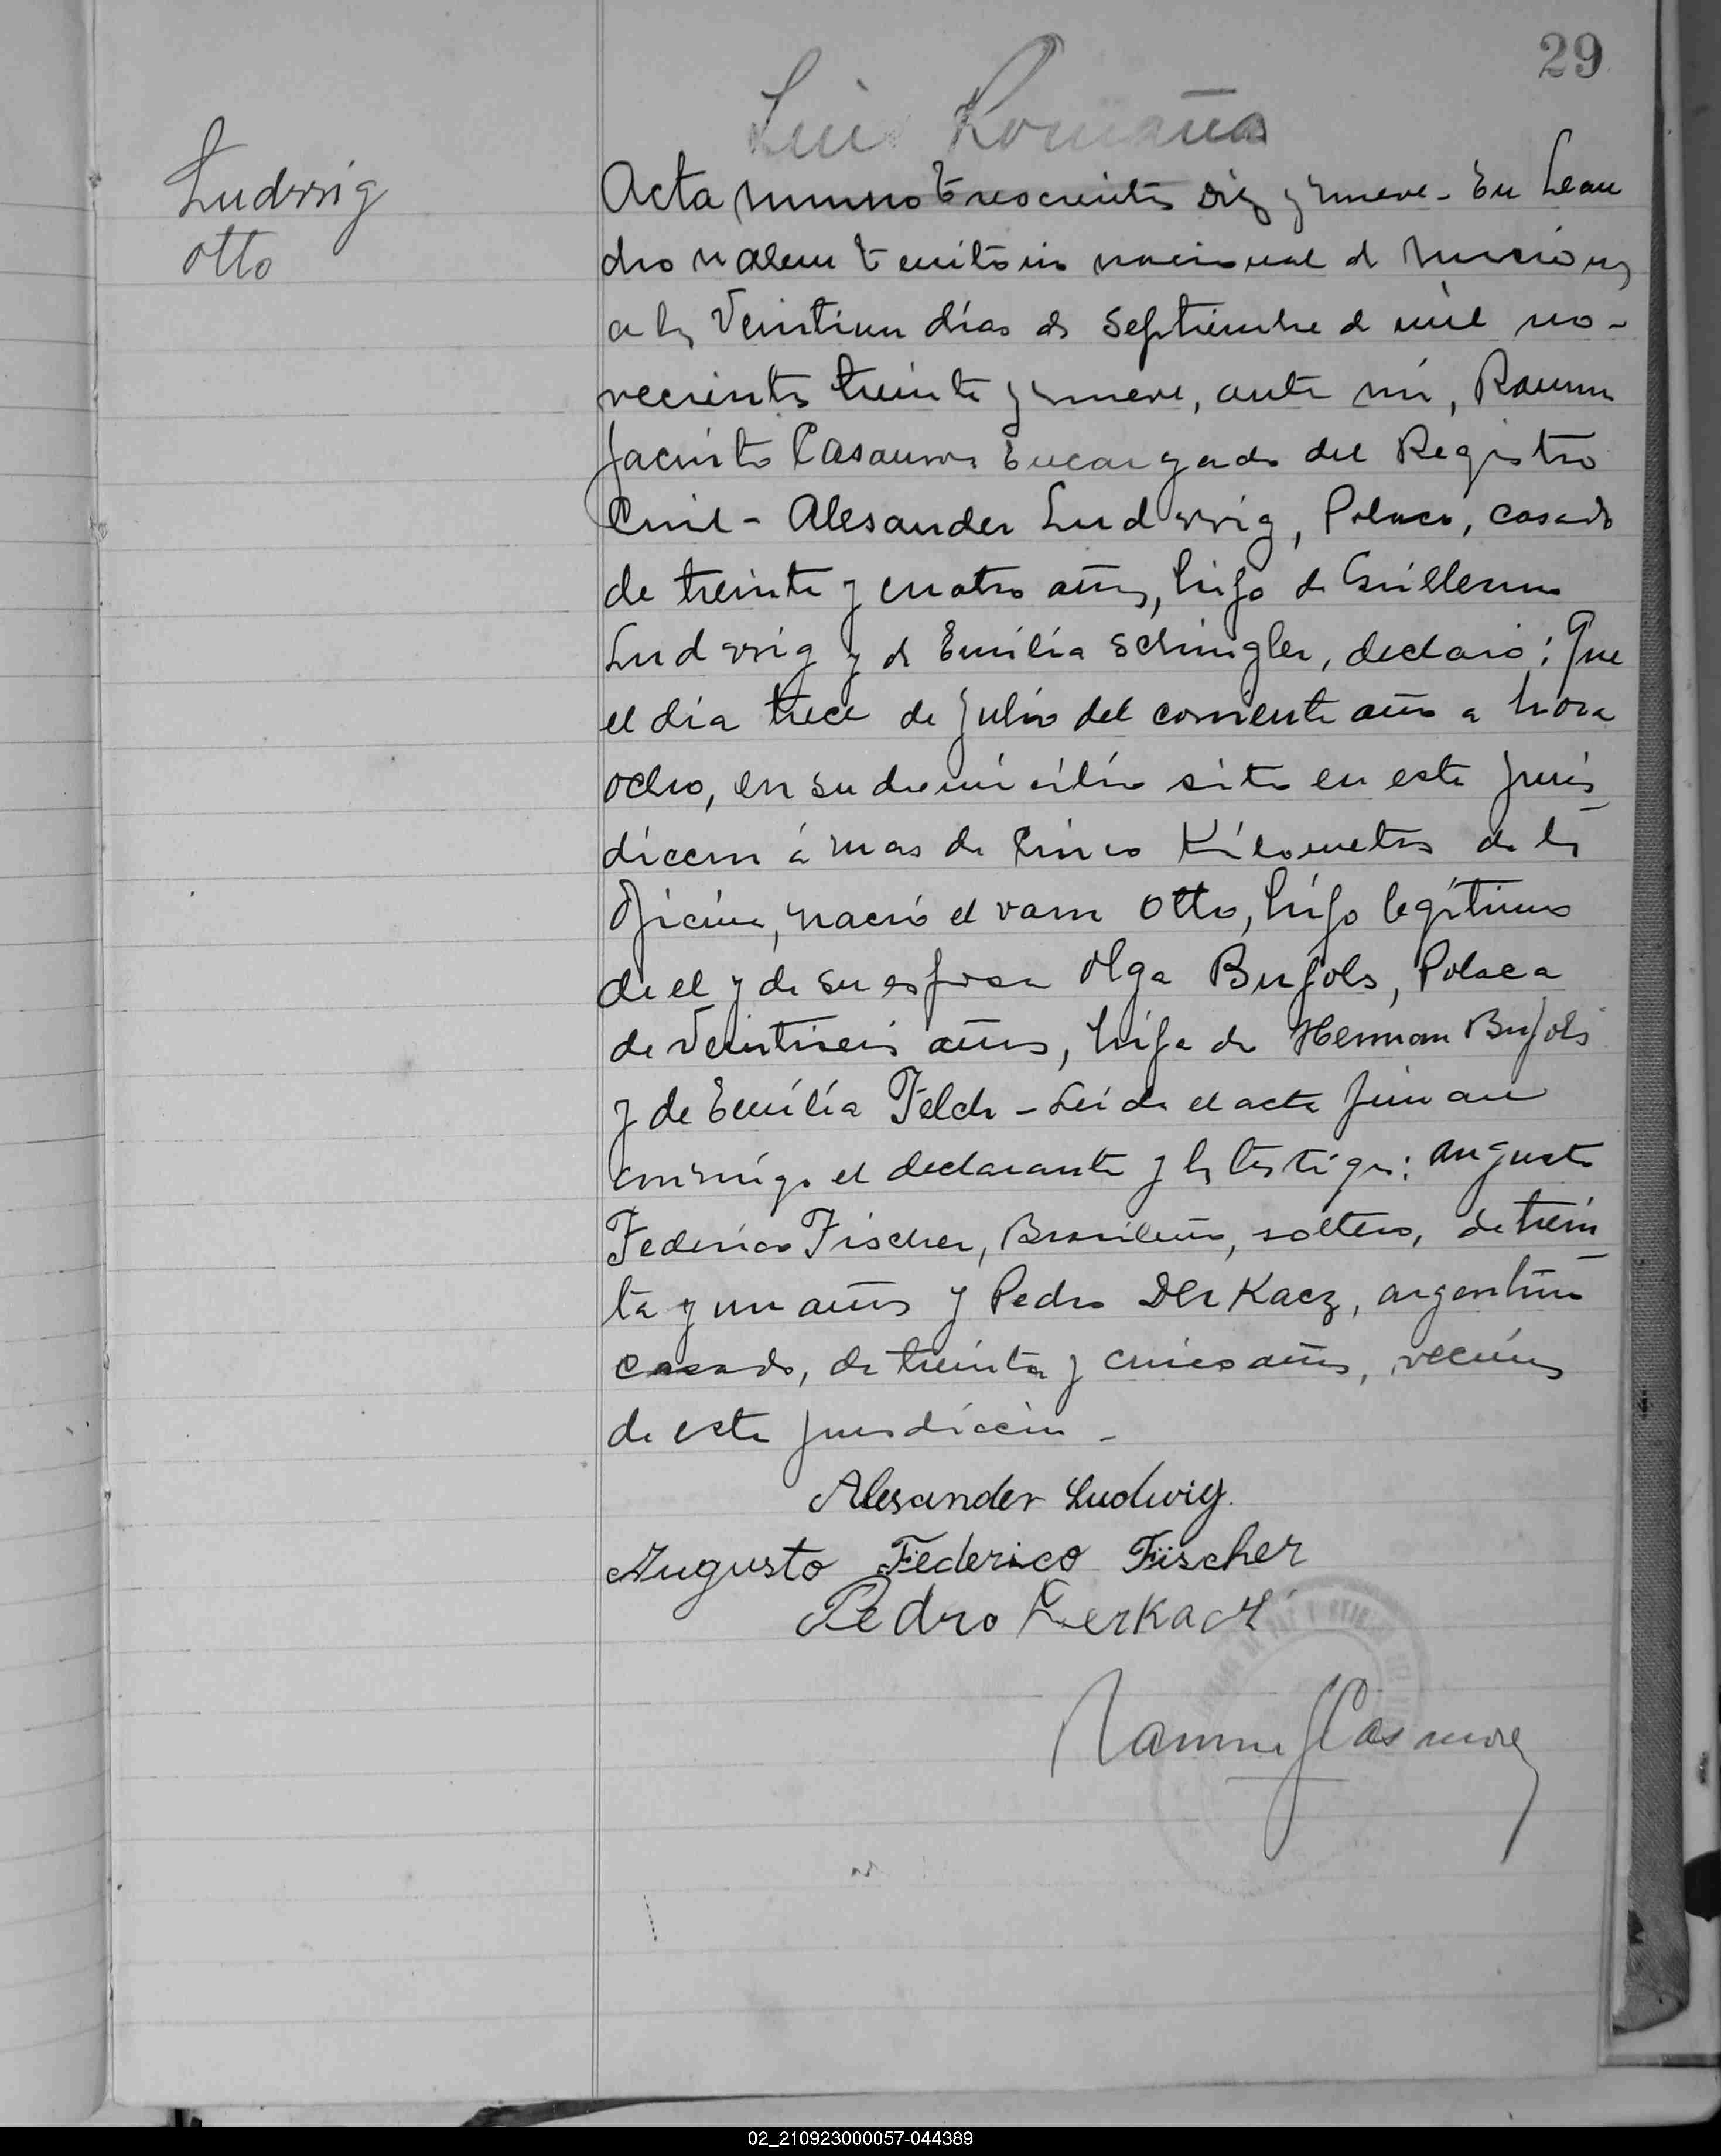 29
Luis Romaña
Ludwig
Otto
Acta numero trescientos diez y nueve - En Lean
dro N Alem territorio nacional de Misiones
a los veintiun días de Septiembre de mil no-
vecientos treinta y nueve, ante mí, Ramon
Jacinto Casanova Encargado del Registro
Civil - Alesander Ludwig, Polaco, casado
de treinta y cuatro años, hijo de Guillermo
Ludwig y de Emilia Schingler, declaró: Que
el día trece de Julio del corriente año a hora
ocho, en su domicilio sito en esta juris
diccion á mas de cinco Kilometros de la
Oficina, nació el varon Otto, hijo legítimo
de el y de su esposa Olga Bufols, Polaca
de veintiseis años, hija de Herman Bufols
y de Emilia Felch - Leida el acta firman
conmigo el declarante y los testigos: Augusto
Federico Fischer, Brasileño, soltero, de trein
ta y un años y Pedro Derkacz, argentino
casado, de treinta y cinco años, vecinos
de esta jurisdiccion -
Alesander Ludwig.
Augusto Federico Fischer
Pedro Derkacz
Ramon J Casanova
02_210923000057-044389